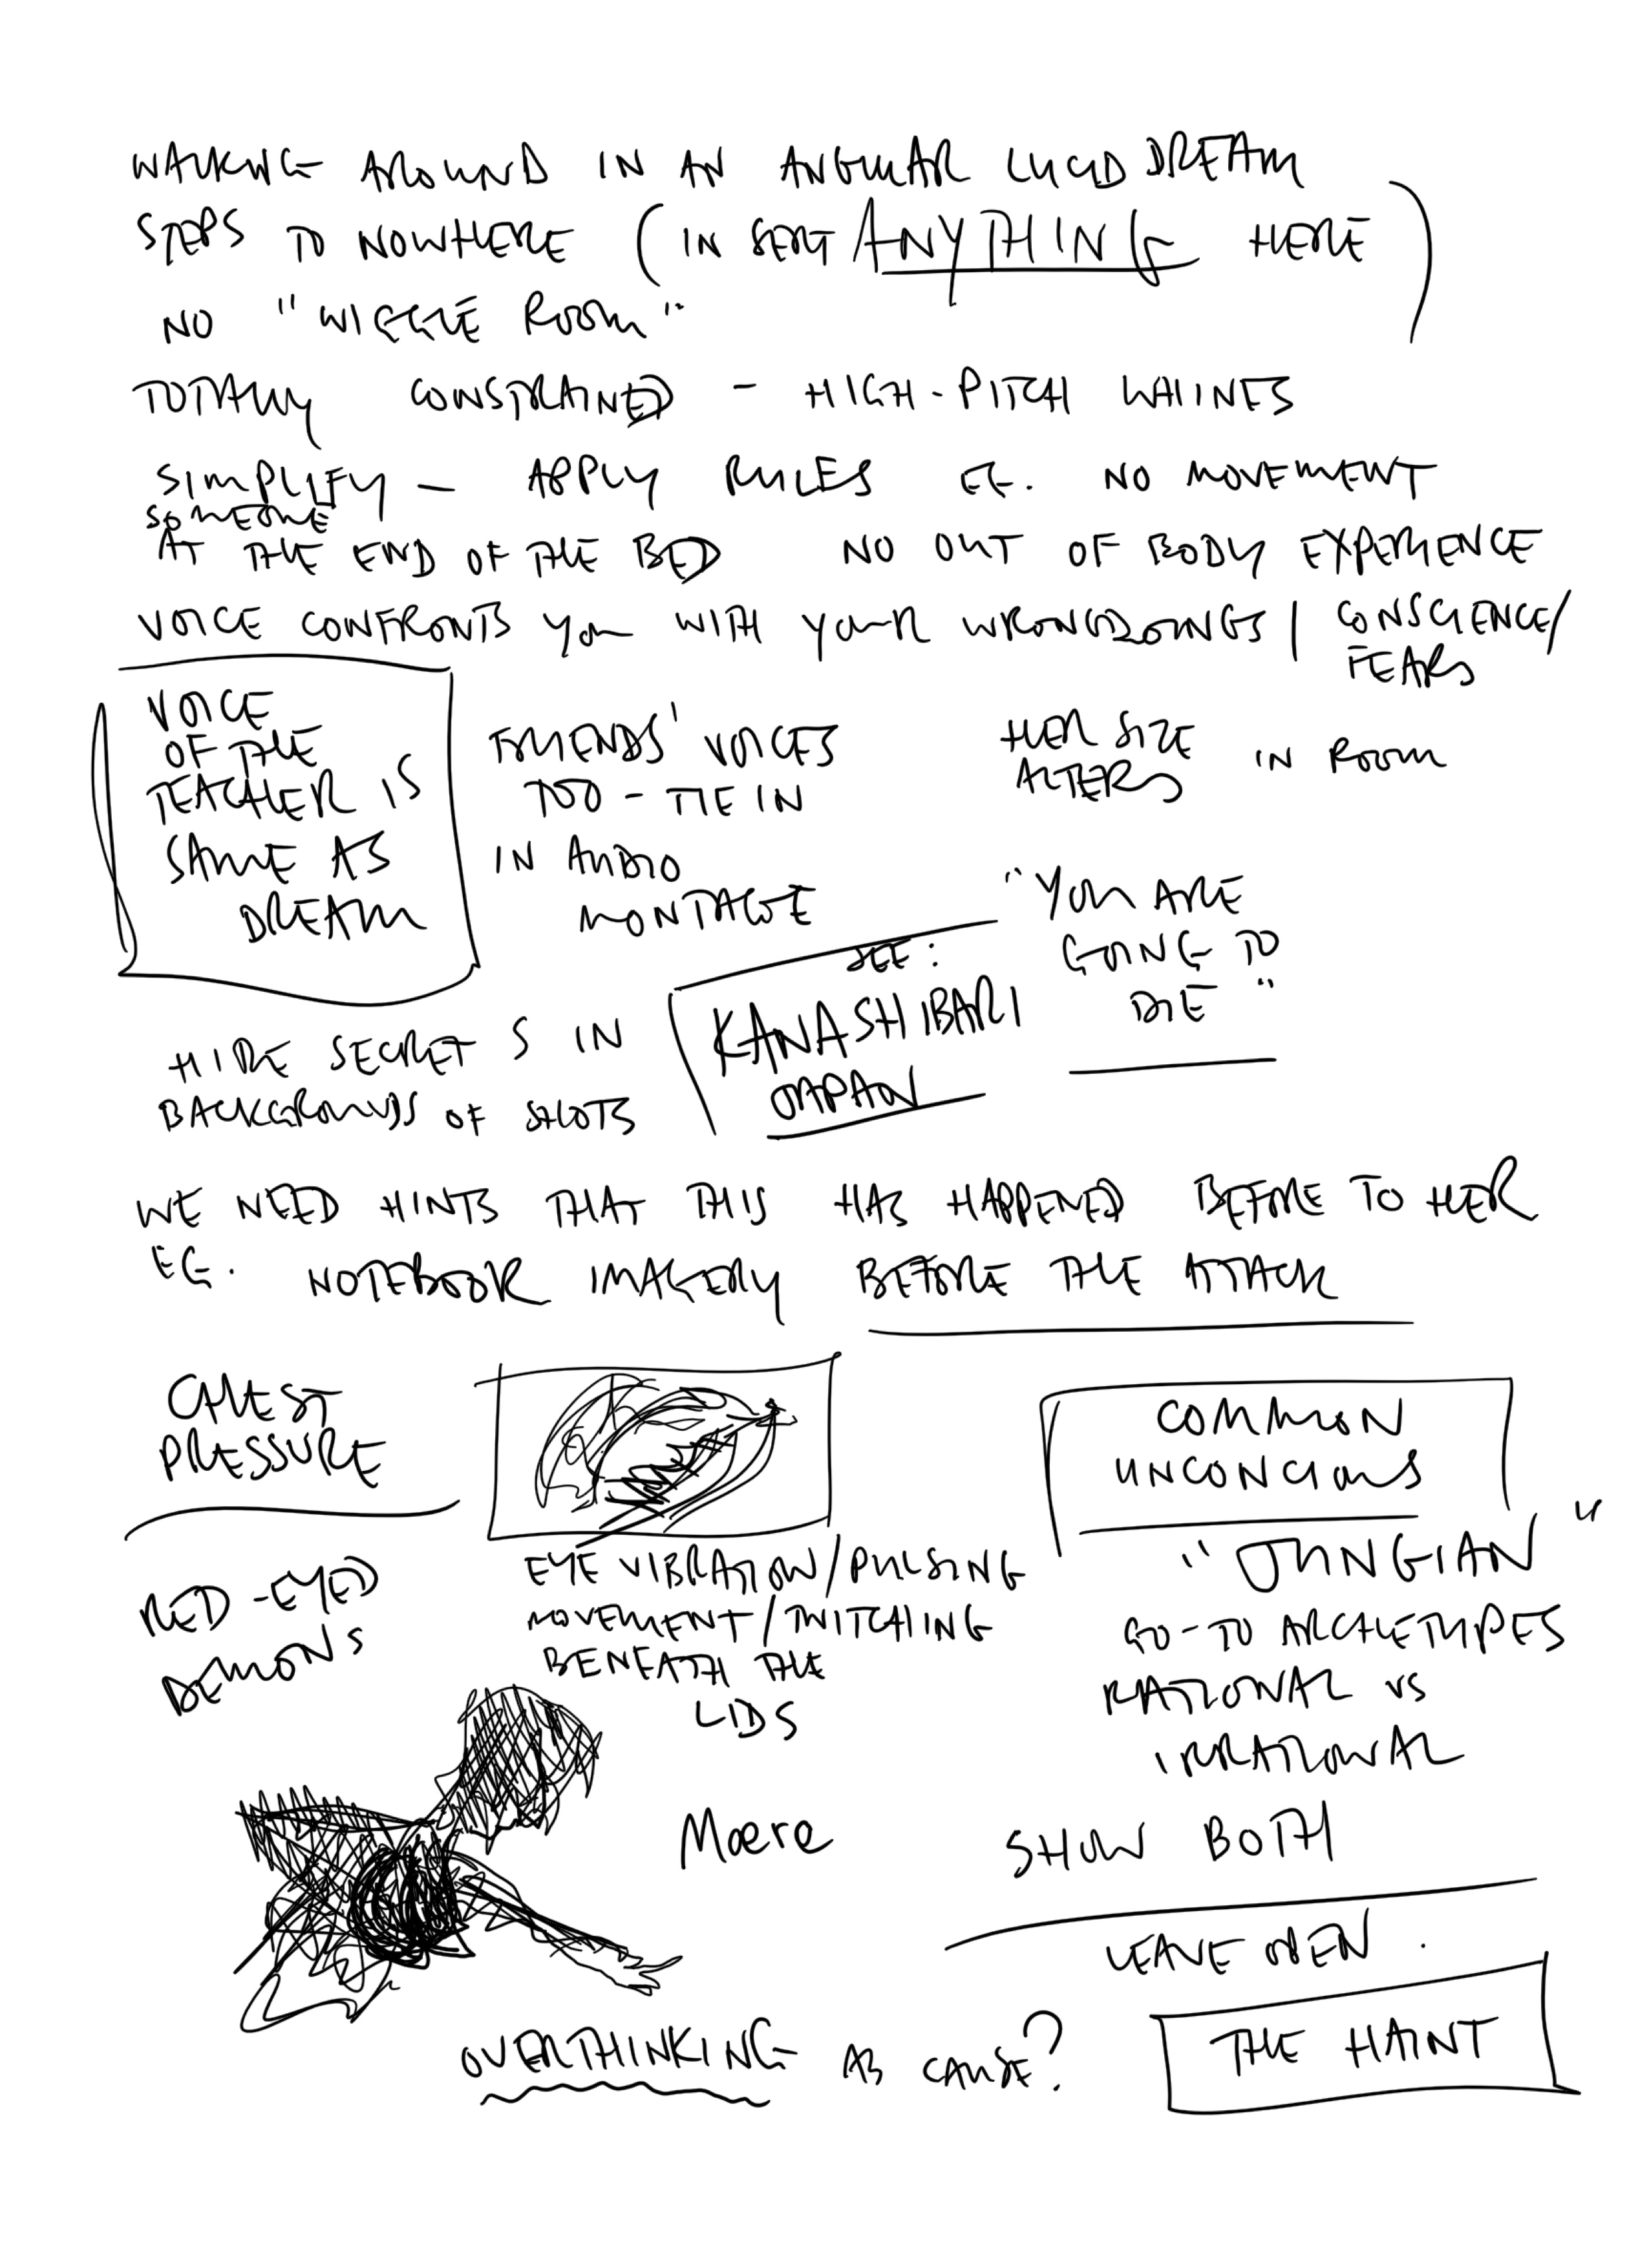 WALKING AROUND IN AN ANGULAR LUCID DREAM
STEPS TO NOWHERE (INSERT ANYTHING HERE)
NO "WIGGLE ROOM"
TOTALLY CONSTRAINED - HIGH-PITCH WHINES
SIMPLIFY - APPLY RULES EG. NO MOVEMENT
SOMEONE
AT THE END OF THE BED NO OUT OF BODY EXPERIENCE
VOICE CONFRONTS YOU WITH YOUR WRONGDOINGS / CONSCIENCE/
FEARS
VOICE
OF THE
TEACHER IS
SAME AS
DREAM
FRIENDS' VOICES
TOO - TIE IN
IN AUDIO
MONTAGE
HER SIZE
ALTERS IN ROOM
"YOU ARE
GOING TO
DIE"
SEE:
KANASHIBARI
JAPAN
HIDE SECRETS IN
BACKGROUNDS OF SHOTS
WE NEED HINTS THAT THIS HAS HAPPENED BEFORE TO HER
EG. NOTEBOOK IMAGERY BEFORE THE ATTACK
CHEST
PRESSURE
RED-EYED
DEMONS
EYE VIBRATION/PULSING
MOVEMENT/TWITCHING
BENEATH THE
LIDS
COMMON
UNCONCIOUS
"JUNGIAN"
GO-TO ARCHETYPES
RATIONAL VS
IRRATIONAL
Maere
SHOW BOTH
LEAVE OPEN.
OVERTHINKING AS CAUSE?
THE HAINT